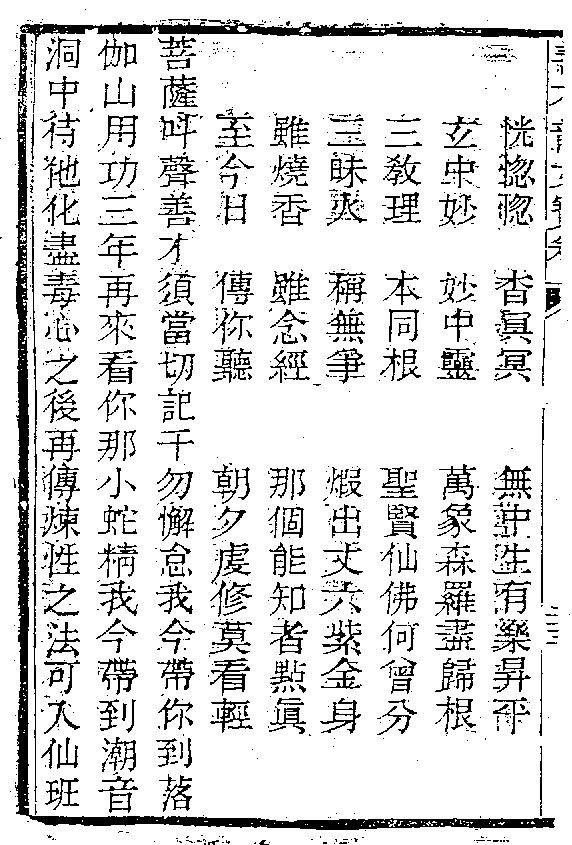 恍惚惚　杳冥冥　無中生有樂昇平
玄中妙　妙中靈　萬象森羅盡歸根
三教理　本同根　聖賢仙佛何曾分
三昧火　稱無爭　煅出丈六紫金身
雖燒香　雖念經　那個能知者點眞
至今日　傳你聽　朝夕虔修莫看輕
菩薩呌聲善才須當切記千勿懈怠我今帶你到落
伽山用功三年再來看你那小蛇精我今帶到潮音
洞中待他化盡毒心之後再傳煉性之法可入仙班